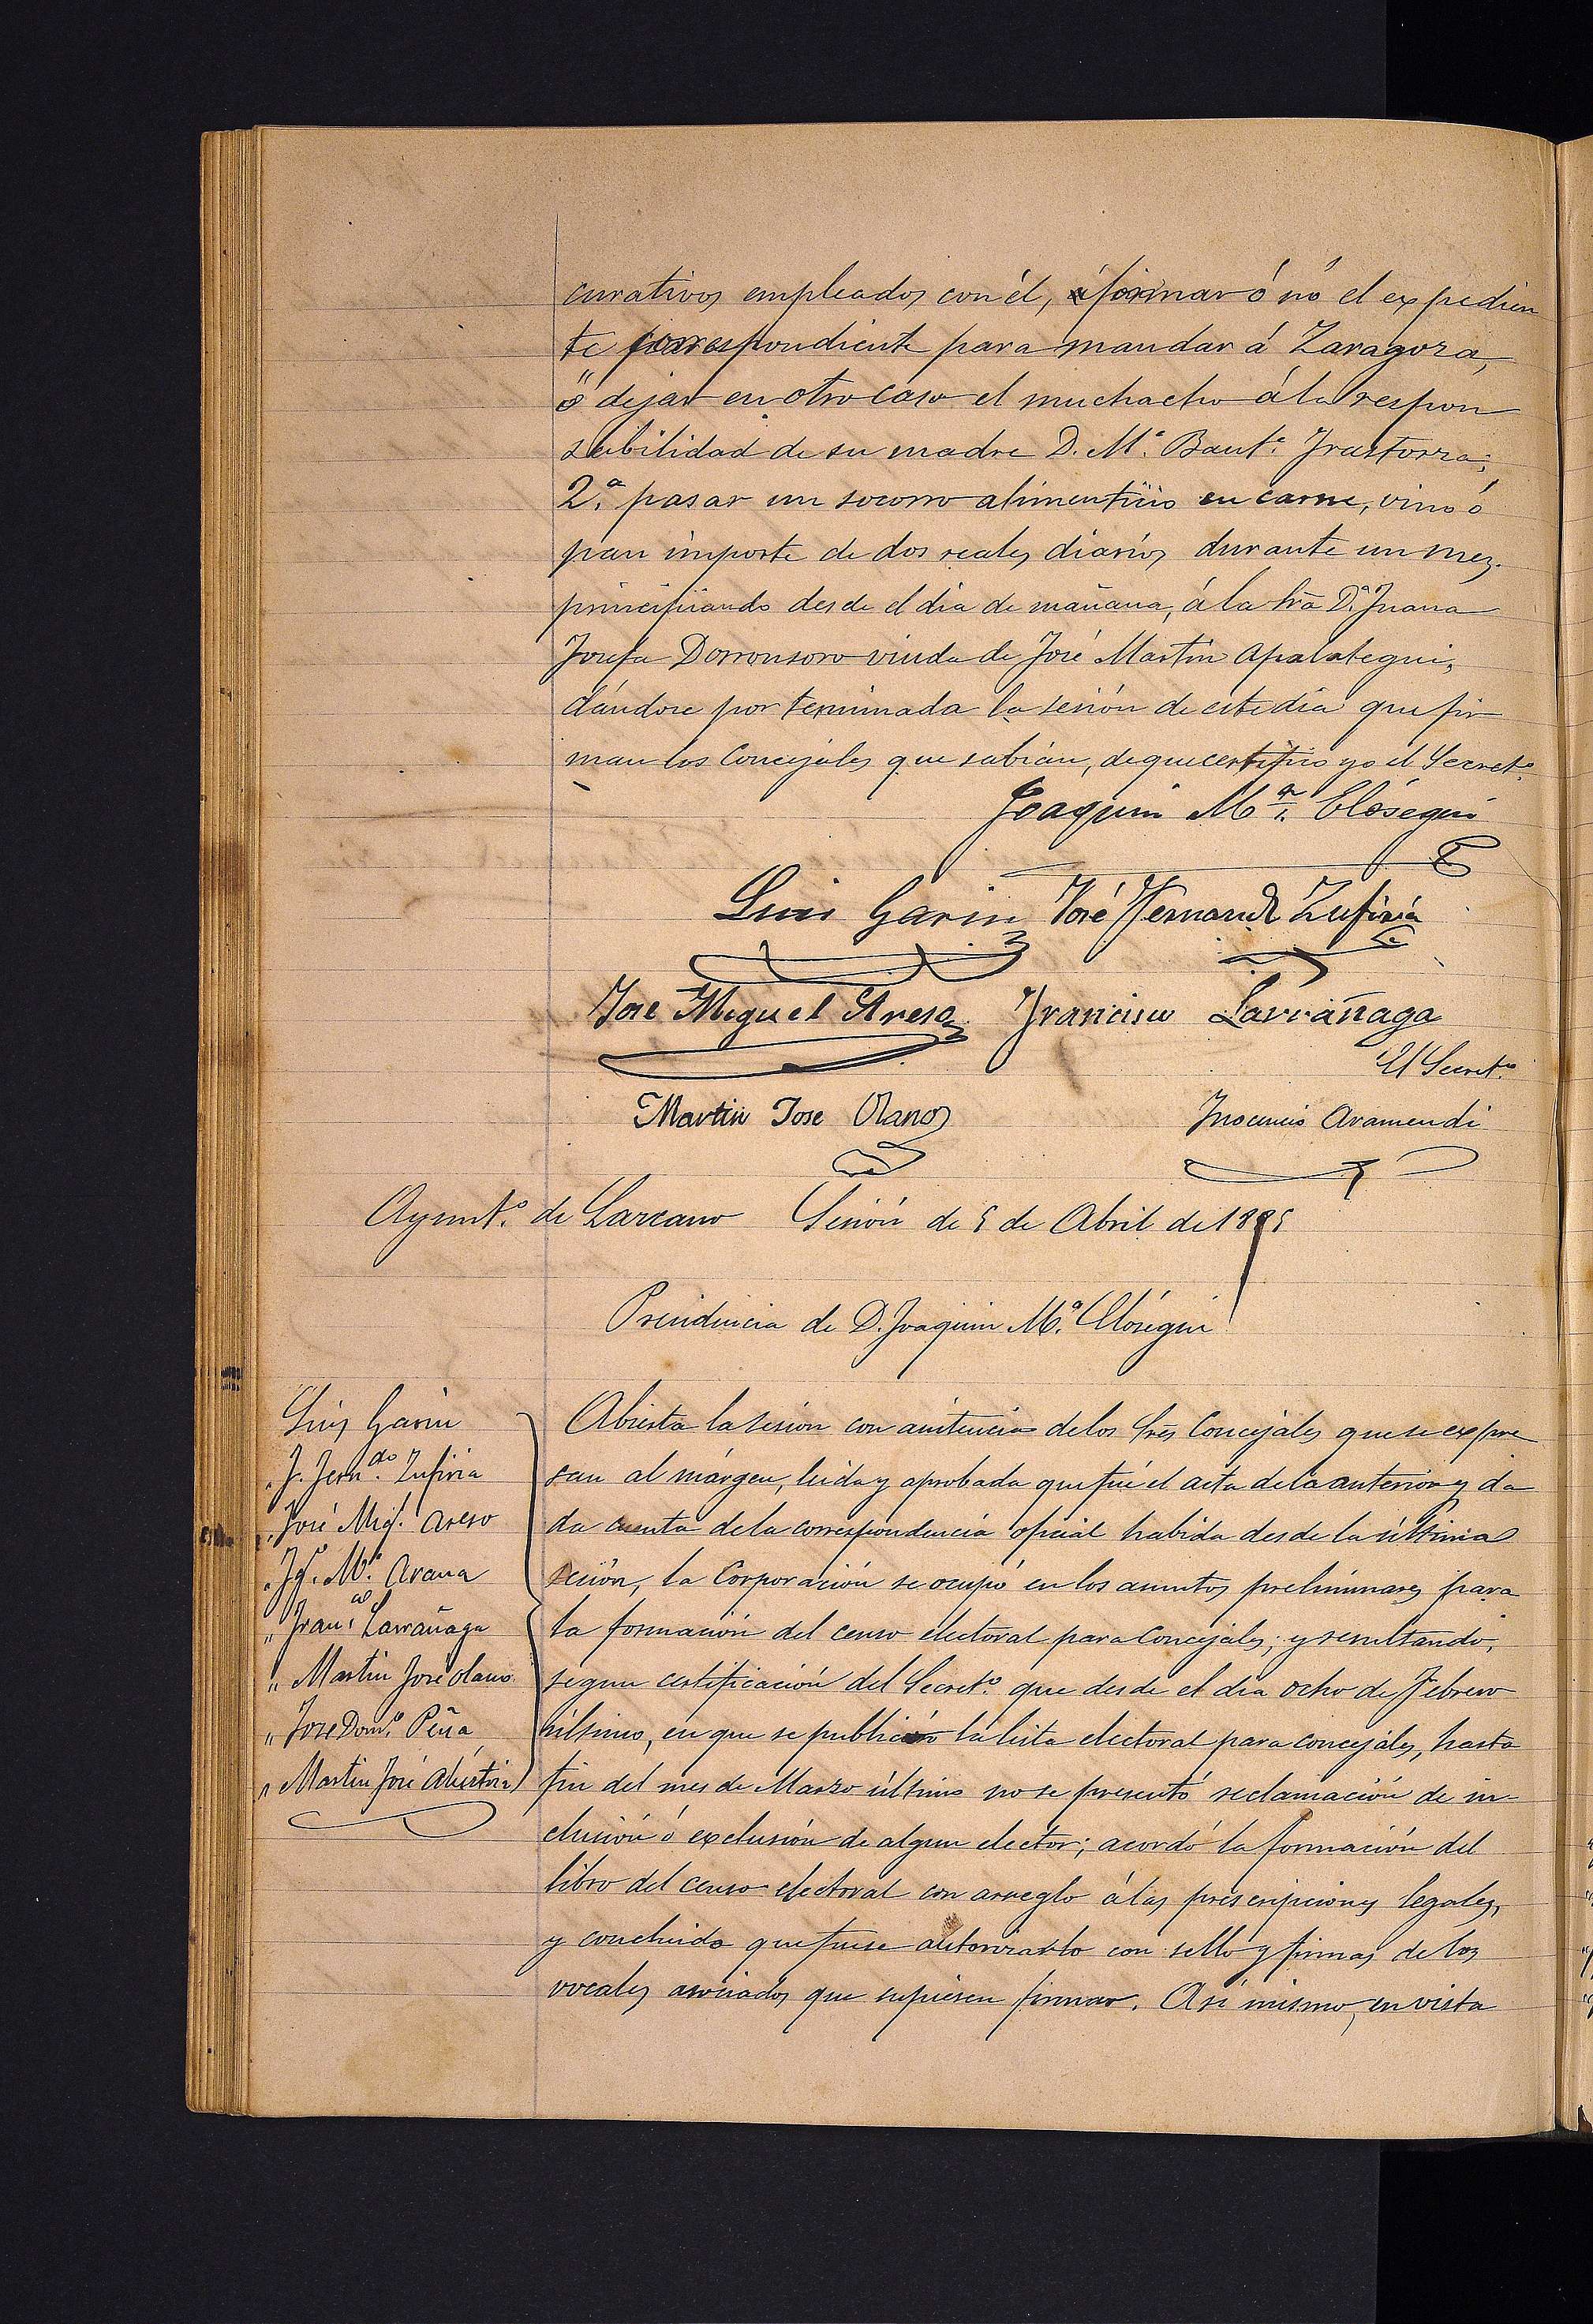 curativos empleados con él, á formar ó nó el expedien
te correspondiente para mandar á Zaragoza,
ó dejar en otro caso el muchacho á la respon
sabilidad de su madre D. Mª. Bautª. Irastorza;
2.ª pasar un socorro alimenticio en carne, vino ó
pan importe de dos reales diarios durante un mes.
principiando desde el dia de mañana, á la Srª Dª. Juana
Josefa Dorronsoro viuda de José Martin Apalategui,
dándose por terminada la sesión de este día que fir
man los Concejales que sabían, de que certifico yo el Secretº.
Joaquin Mª. Elósegui
Luis Garin José Fernando Zufiria
José Miguel Areso Francisco Larrañaga
El Secretº.
Martin Jose Olano Inocencio Aramendi
Ayuntº. de Lazcano Sesión de 5 de Abril de 1885
Presidencia de D. Joaquin Mª. Elósegui
Luis Garin
„ J. Fernᵈᵒ. Zufiria
„ José Migˡ. Areso
„ Igº. Mª. Arana
„ Franᶜᵒ. Larrañaga
„ Martin José Olano.
„ Jose Domº. Peña
„ Martin José Alustiza
Abierta la sesion con asistencia de los Sres Concejales que se expre
san al márgen, leida y aprobada que fué el acta de la anterior y da
da cuenta de la correspondencia oficial habida desde la última
sesión, la Corporación se ocupó en los asuntos preliminares para
la formación del censo electoral para Concejales; y resultando,
segun certificación del Secretº. que desde el dia ocho de Febrero
último, en que se publicó la lista electoral para concejales, hasta
fin del mes de Marzo último no se presentó reclamación de in-
clusión ó exclusión de algun elector; acordó la formación del
libro del censo electoral con arreglo á las prescripciones legales,
y concluido que fuese autorizarlo con sello y firmas de los
vocales asociados que supiesen firmar. Así mismo, en vista